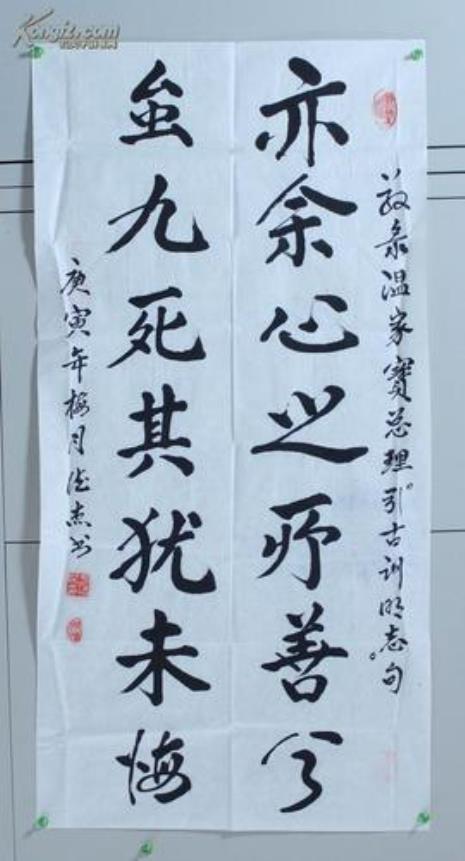 Kongfz.com
敬录温家寶总理引古训明志句
亦余心之所善兮
虽九死其犹未悔
庚寅年梅月杰书